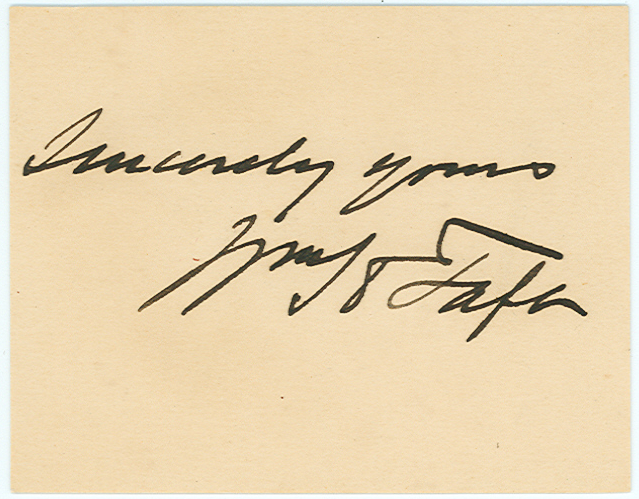 Sincerely yours
Wm H Taft